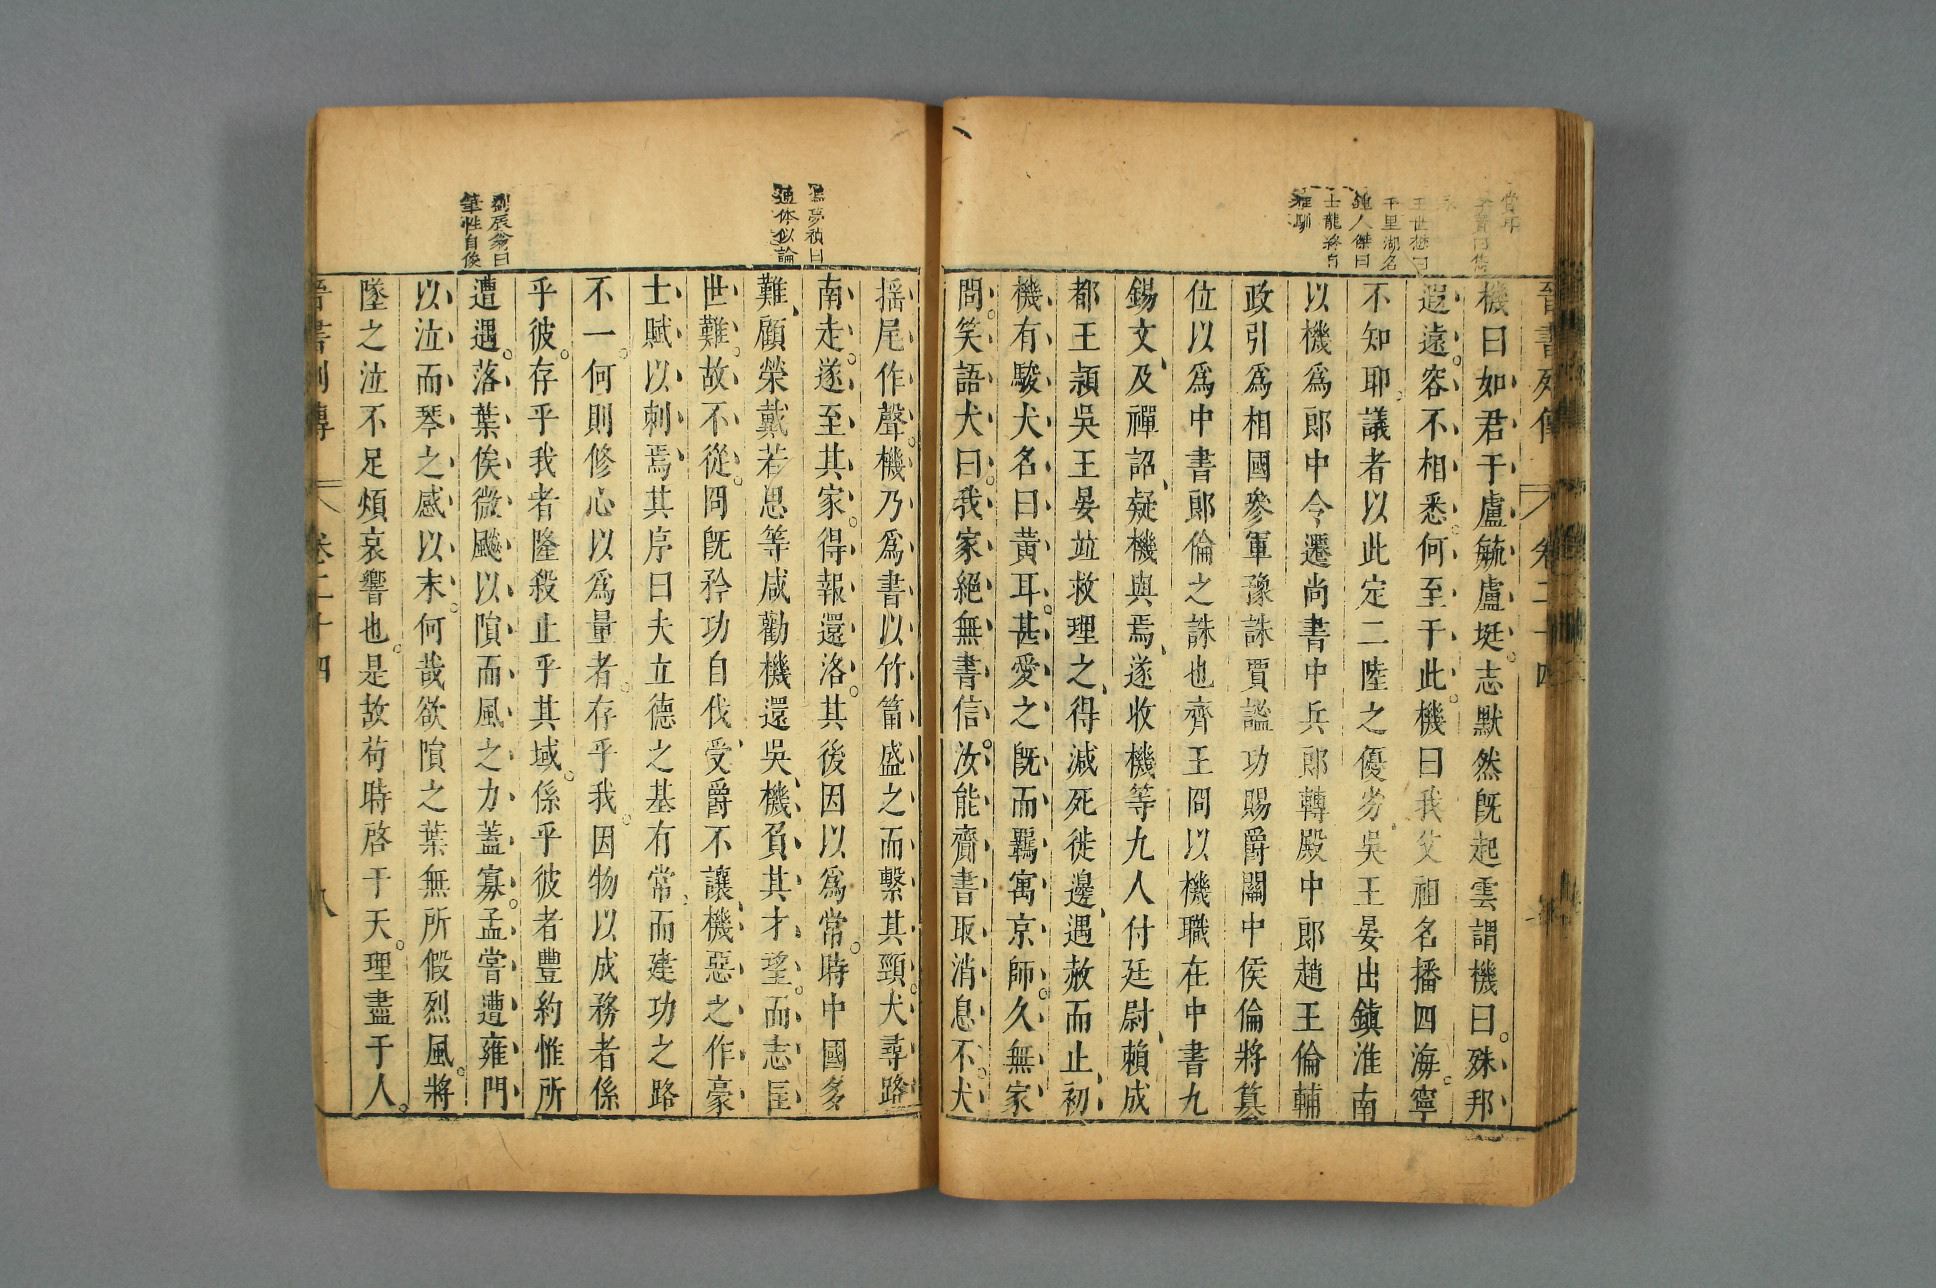 晉書列傳 卷二十四
機曰如君于盧毓盧珽志默然旣起雲謂機曰殊邦
遐遠容不相悉何至于此機曰我父祖名播四海寧
不知耶議者以此定二陸之優劣吳王晏出鎮淮南
以機爲郎中令遷尚書中兵郎轉殿中郎趙王倫輔
政引爲相國參軍豫誅賈謐功賜爵關中侯倫將篡
位以爲中書郎倫之誅也齊王冏以機職在中書九
錫文及禪詔疑機與焉遂收機等九人付廷尉賴成
都王頴吳王晏竝救理之得減死徙邊遇赦而止初
機有駿犬名曰黃耳甚愛之旣而羈寓京師久無家
問笑語犬曰我家絕無書信汝能齎書取消息不犬
搖尾作聲機乃爲書以竹筩盛之而繫其頸犬尋路
南走遂至其家得報還洛其後因以爲常時中國多
難顧榮戴若思等咸勸機還吳機負其才望而志匡
世難故不從冏旣矜功自伐受爵不讓機惡之作豪
士賦以刺焉其序曰夫立德之基有常而建功之路
不一何則修心以爲量者存乎我因物以成務者係
乎彼存乎我者隆殺止乎其域係乎彼者豐約惟所
遭遇落葉俟微飈以隕而風之力蓋寡孟嘗遭雍門
以泣而琴之感以末何哉欲隕之葉無所假烈風將
墜之泣不足煩哀響也是故苟時啓于天理盡于人
晉書列傳 卷二十四 八
王世懋曰
千里湖名
鍾人傑曰
士龍將自
雅馴
馮夢禎曰
通体似論
劉辰翁曰
筆性自俊